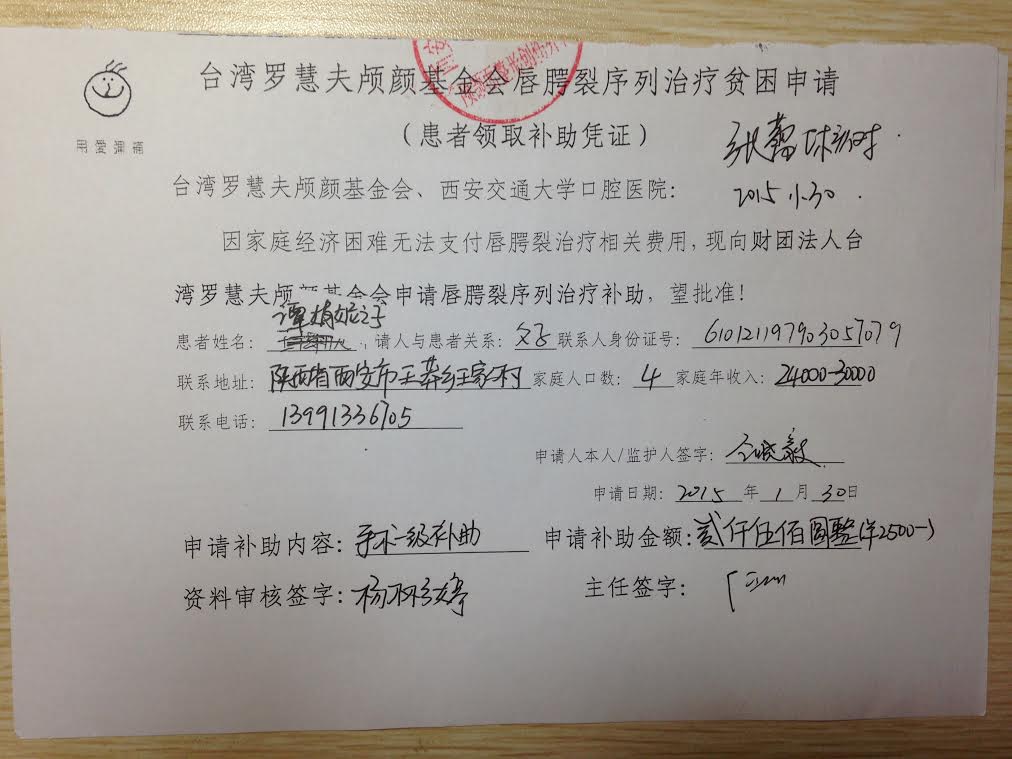 台湾罗慧夫颅颜基金会唇腭裂序列治疗贫困申请
用爱弥补
(患者领取补助凭证)
张蕾
2015.1.30.
台湾罗慧夫颅颜基金会、西安交通大学口腔医院:
因家庭经济困难无法支付唇腭裂治疗相关费用,现向财团法人台
湾罗慧夫颅颜基金会申请唇腭裂序列治疗补助,望批准!
患者姓名: 谭 之子 ,请人与患者关系: 父子 联系人身份证号: 610121197903057079
联系地址: 陕西省西安市王莽乡王家村 家庭人口数: 4 家庭年收入: 24000-30000
联系电话: 13991336705
申请人本人/监护人签字:
申请日期: 2015 年 1 月 30 日
申请补助内容: 手术一级补助 申请补助金额: 贰仟伍佰圆整(¥2500-)
资料审核签字: 主任签字: